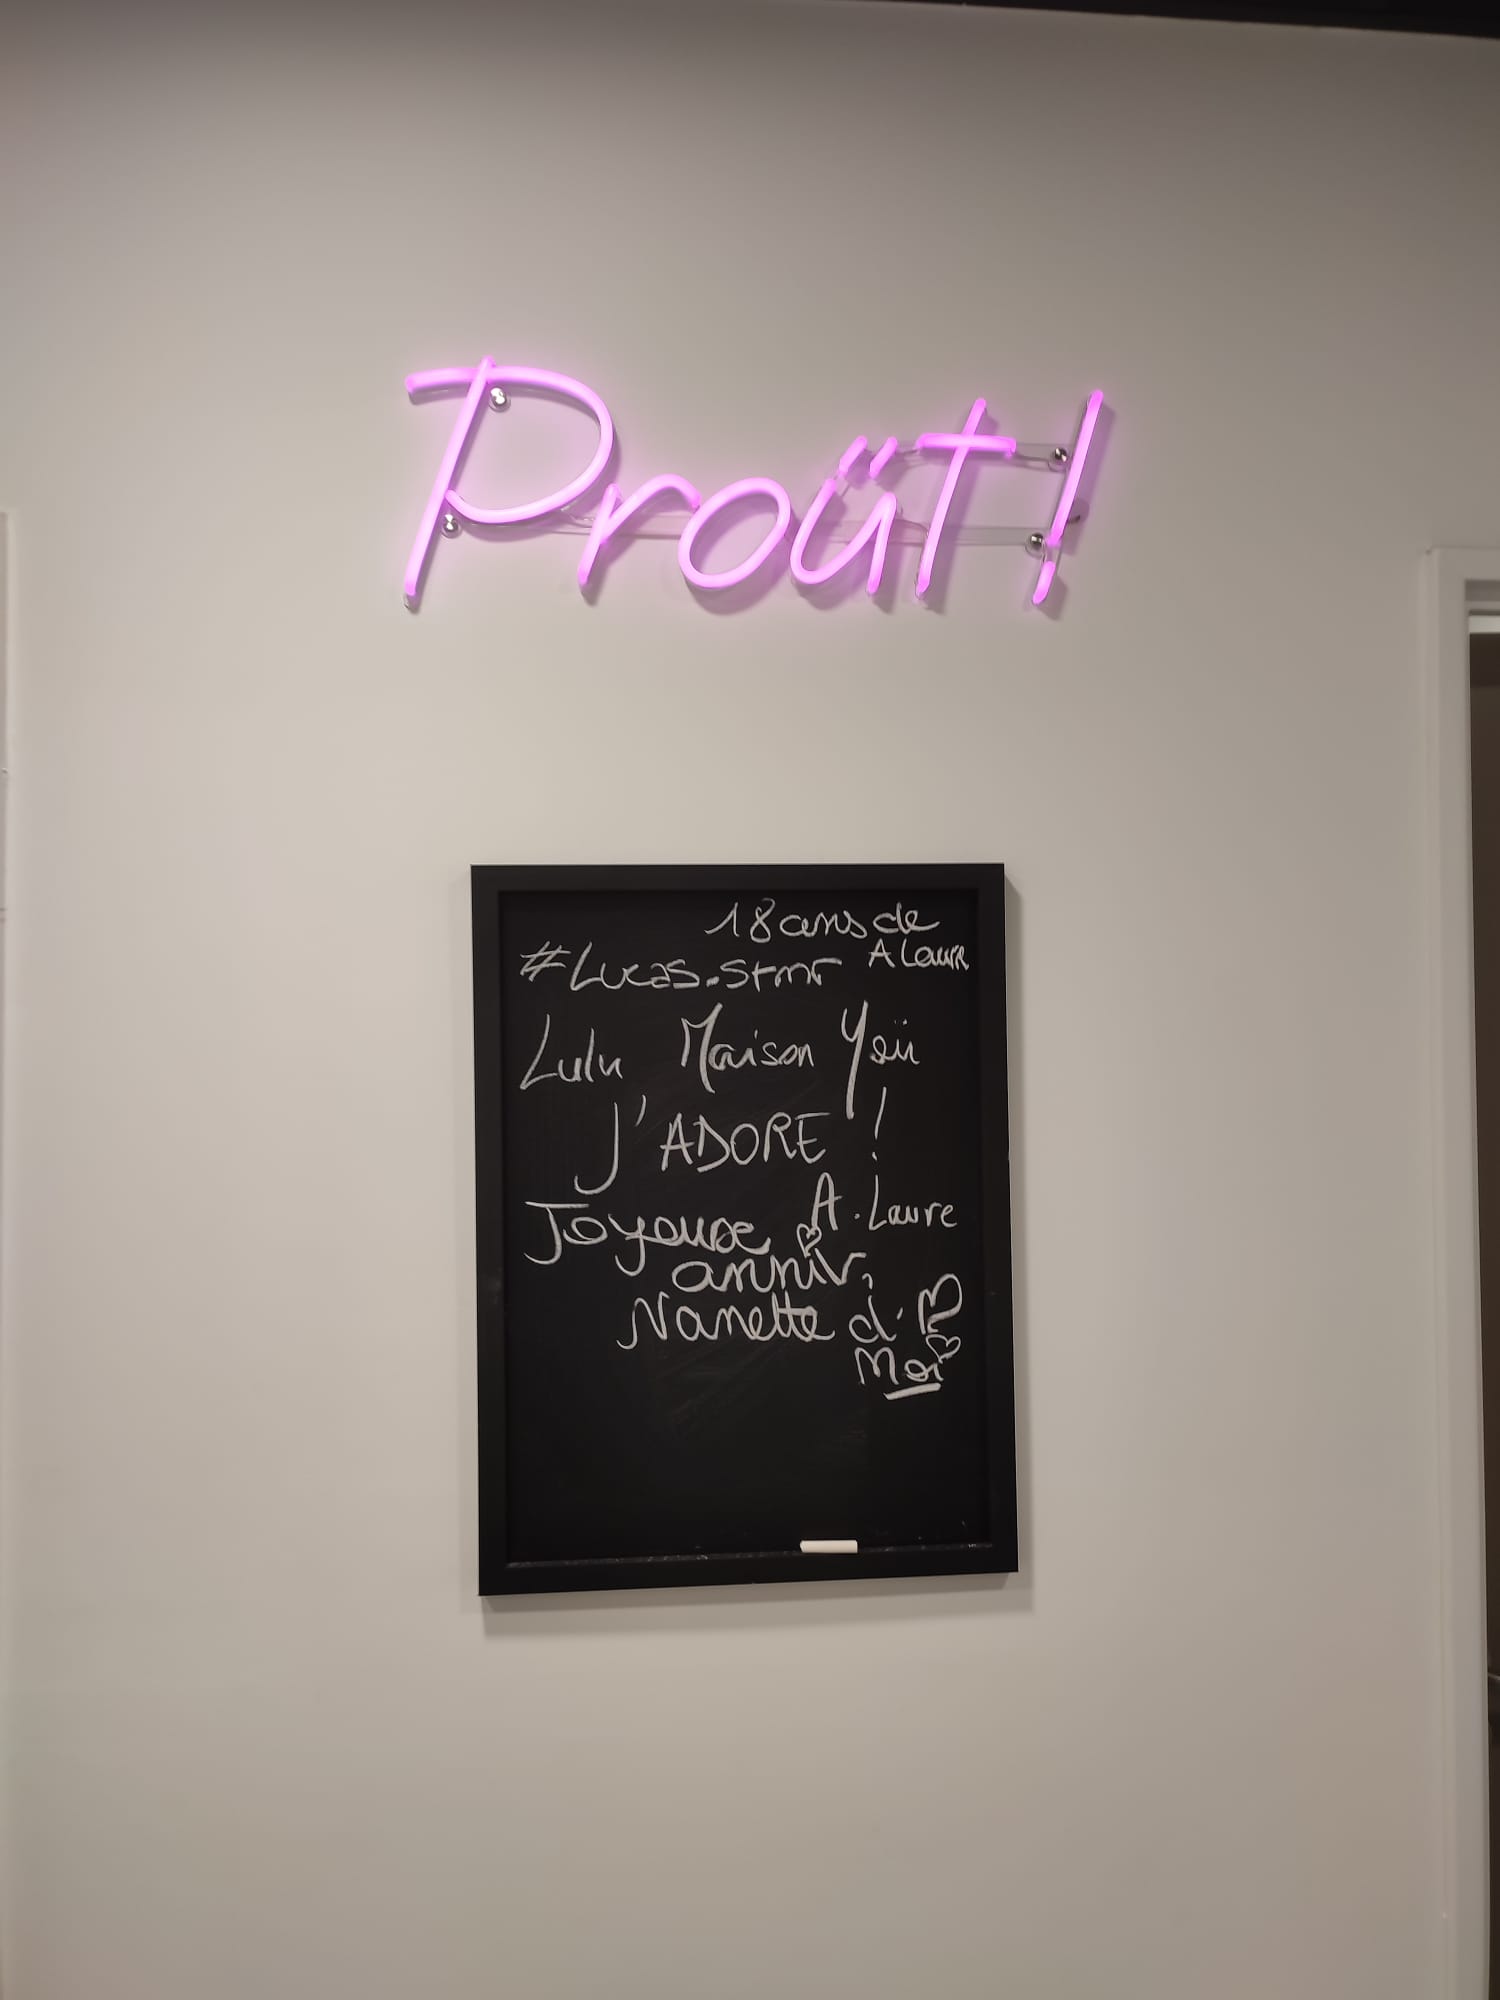 Proüt!
18 ans de
A Laure
#Lucas.stmr
Lulu Maison Yoü
J'ADORE !
A. Laure
Joyeuse
anniv,
Nanette d.
Moi